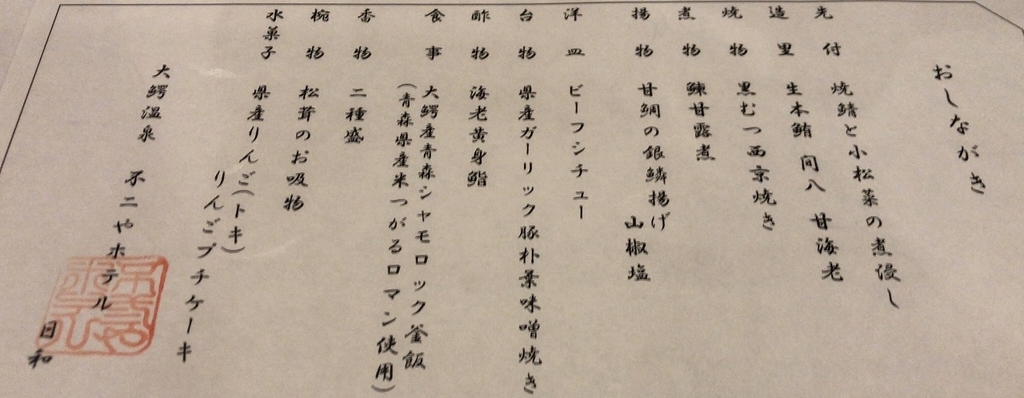 おしながき
先付 焼鯖と小松菜の煮浸し
造里 生本鮪 間八 甘海老
焼物 黒むつ西京焼き
煮物 鰊甘露煮
揚物 甘鯛の銀鱗揚げ
山椒塩
洋皿 ビーフシチュー
台物 県産ガーリック豚朴葉味噌焼き
酢物 海老黄身鮨
食事 大鰐産青森シャモロック釜飯
(青森県産米つがるロマン使用)
香物 二種盛
椀物 松茸のお吸物
水菓子 県産りんご(トキ)
りんごプチケーキ
大鰐温泉 不二やホテル 日和